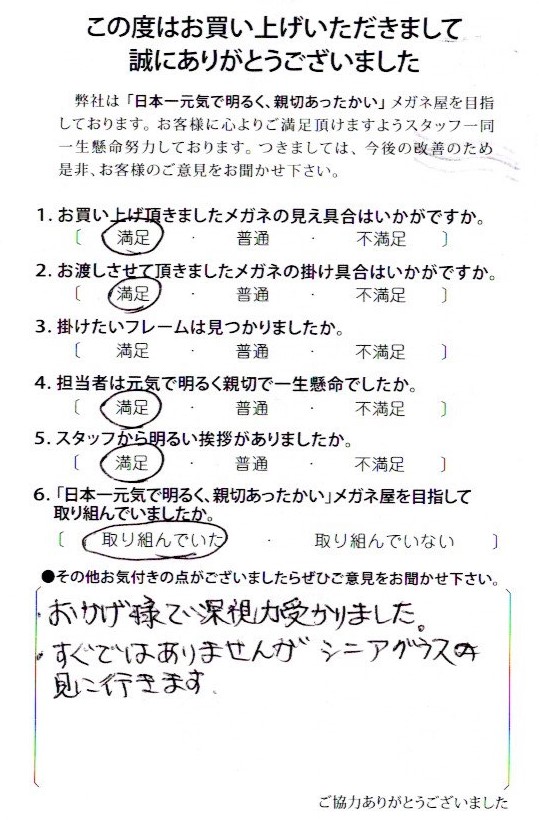 この度はお買い上げいただきまして
誠にありがとうございました
弊社は「日本一元気で明るく、親切あったかい」メガネ屋を目指
しております。お客様に心よりご満足頂けますようスタッフ一同
一生懸命努力しております。つきましては、今後の改善のため
是非、お客様のご意見をお聞かせ下さい。
1. お買い上げ頂きましたメガネの見え具合はいかがですか。
〔 満足 ・ 普通 ・ 不満足 〕
2. お渡しさせて頂きましたメガネの掛け具合はいかがですか。
〔 満足 ・ 普通 ・ 不満足 〕
3. 掛けたいフレームは見つかりましたか。
〔 満足 ・ 普通 ・ 不満足 〕
4. 担当者は元気で明るく親切で一生懸命でしたか。
〔 満足 ・ 普通 ・ 不満足 〕
5. スタッフから明るい挨拶がありましたか。
〔 満足 ・ 普通 ・ 不満足 〕
6. 「日本一元気で明るく、親切あったかい」メガネ屋を目指して
取り組んでいましたか。
〔 取り組んでいた ・ 取り組んでいない 〕
●その他お気付きの点がございましたらぜひご意見をお聞かせ下さい。
・おかげ様で深視力受かりました。
・すぐではありませんが シニアグラスも
見に行きます.
ご協力ありがとうございました